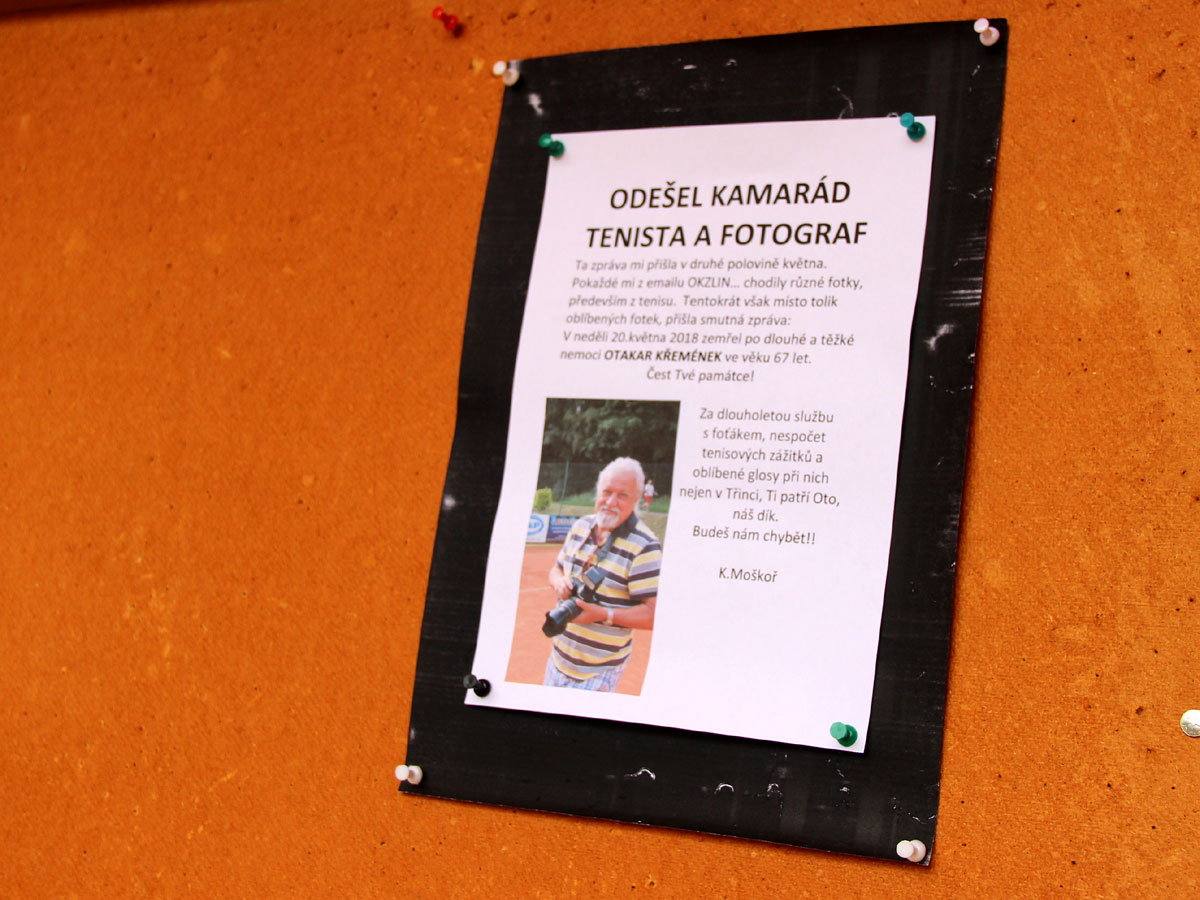 ODEŠEL KAMARÁD
TENISTA A FOTOGRAF
Ta zpráva mi přišla v druhé polovině května.
Pokaždé mi z emailu OKZLIN... chodily různé fotky,
především z tenisu. Tentokrát však místo tolik
oblíbených fotek, přišla smutná zpráva:
V neděli 20.května 2018 zemřel po dlouhé a těžké
nemoci OTAKAR KŘEMÉNEK ve věku 67 let.
Čest Tvé památce!
Za dlouholetou službu
s foťákem, nespočet
tenisových zážitků a
oblíbené glosy při nich
nejen v Třinci, Ti patří Oto,
náš dík.
Budeš nám chybět!!
K.Moškoř